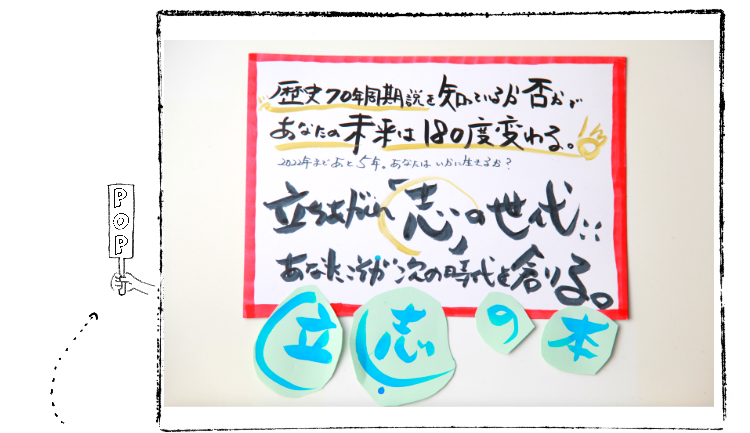 歴史70年周期説を知っているか否かで
あなたの未来は180度変わる。
2022年まであと5年。あなたはいかに生きるか?
立ちあがれ「志」の世代!!
あなたこそが次の時代を創る。
立志の本
POP